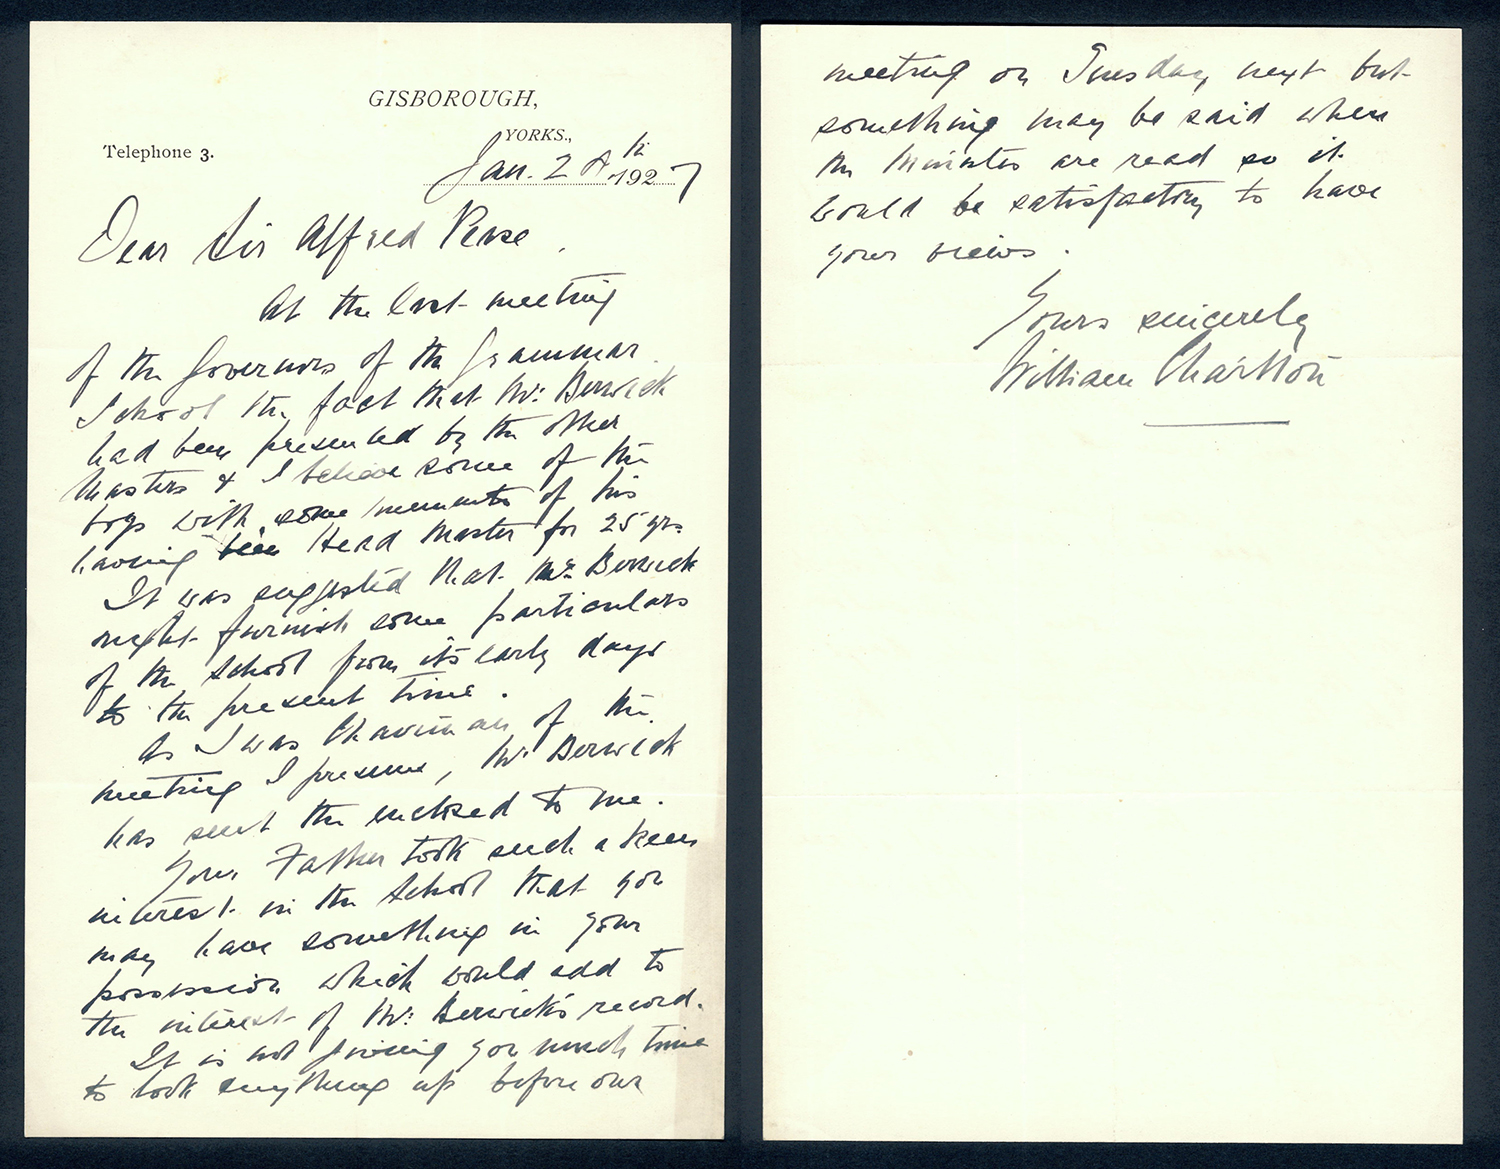 GISBOROUGH,
YORKS.,
Telephone 3.
Jan. 28th 1927
Dear Sir Alfred Pease.
At the last meeting
of the Governors of the Grammar
School the fact that Mr. Berwick
had been presented by the other
Masters & I believe some of the
boys with some memento of his
having been Head Master for 25 yrs.
It was suggested that Mr. Berwick
might furnish some particulars
of the School from its early days
to the present time.
As I was Chairman of the
meeting I presume, Mr. Berwick
has sent the enclosed to me.
Your Father took such a keen
interest in the School that you
may have something in your
possession which would add to
the interest of Mr. Berwick's record.
It is not giving you much time
to look anything up before our
meeting on Tuesday next but
something may be said when
the Minutes are read so it
would be satisfactory to have
your views.
Yours sincerely
William Charlton